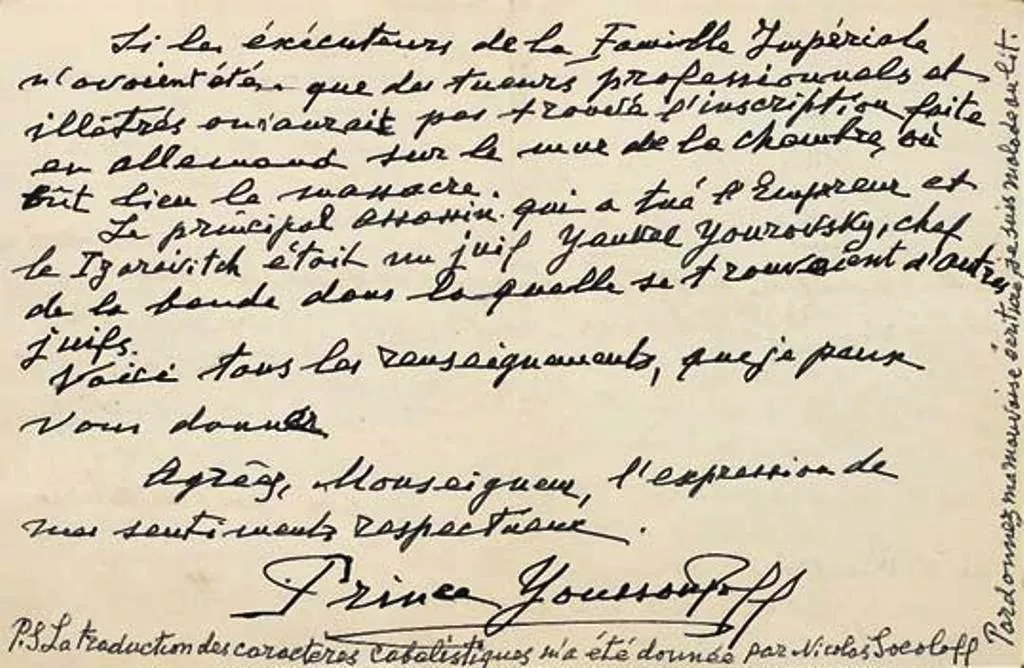 Si les éxécuteurs de la Famille Impériale
n'avaient été que des tueurs professionnels et
illétrés on n'aurait pas trouvé l'inscription faite
en allemand sur le mur de la chambre, où
eût lieu le massacre.
Le principal assassin qui a tué l'Empereur et
le Tzarévitch était un juif Yankel Yourovsky, chef
de la bande dans laquelle se trouvaient d'autres
juifs.
Voici tous les renseignements, que je peux
vous donner
Agréez, Monseigneur, l'expression de
mes sentiments respectueux.
Prince Youssoupoff
P.S. La traduction des caractères cabalistiques m'a été donnée par Nicolas Socoloff
Pardonnez ma mauvaise écriture je suis malade au lit.